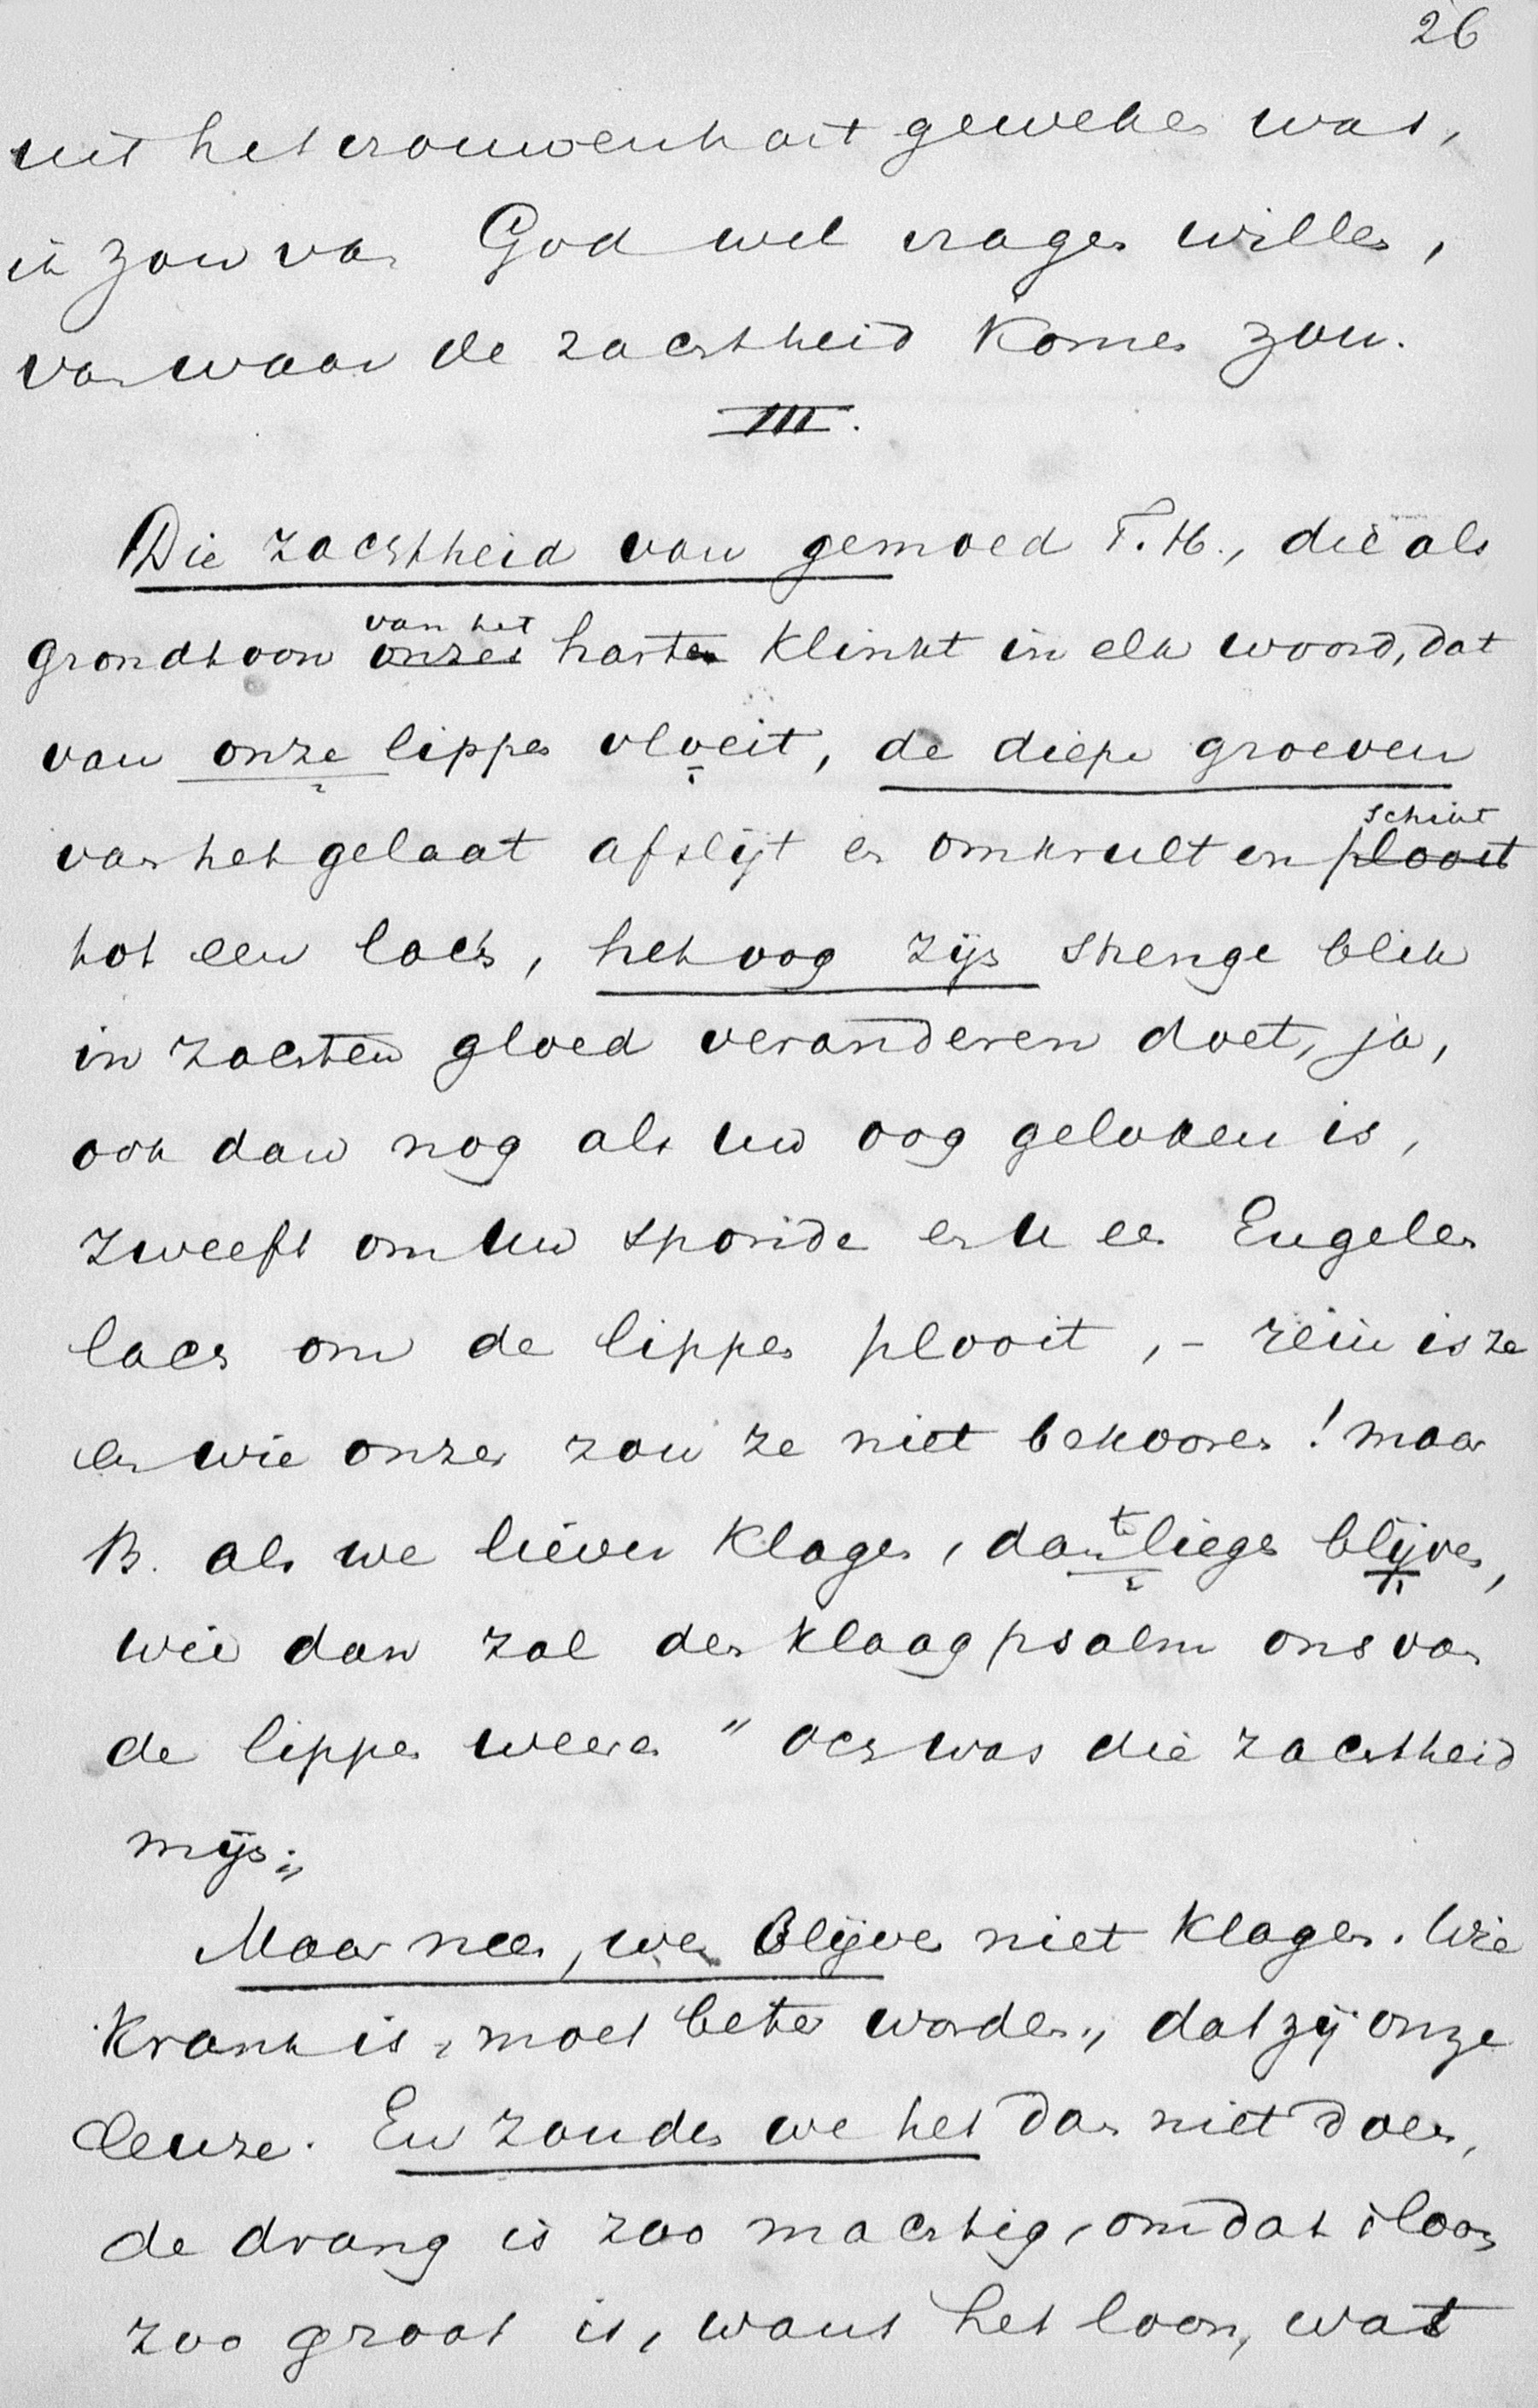 26
uit het vrouwenhart geweken was,
ik zou van God wel vragen willen,
van waar de zachtheid komen zou.
III.
Die zachtheid van gemoed T. H., die als
van het
grondtoon onzes harten klinkt in elk woord, dat
van onze lippen vloeit, de diepe groeven
schikt
van het gelaat afslijt en omkrult en plooit
tot een lach, het oog zijn strenge blik
in zachten gloed veranderen doet, ja,
ook dan nog als uw oog geloken is,
zweeft om uw sponde en u een Engelen
lach om de lippen plooit, – rein is ze
en wie onzer zou ze niet bekooren! maar
B. als we liever klagen, dan te liegen blijven,
wie dan zal den klaagpsalm ons van
de lippen weeren "och was die zachtheid
mijn."
Maar neen, we blijven niet klagen. Wie
krank is, moet beter worden, dat zij onze
leuze. En zouden we het dan niet doen,
de drang is zoo machtig, omdat 't loon
zoo groot is, want het loon, wat